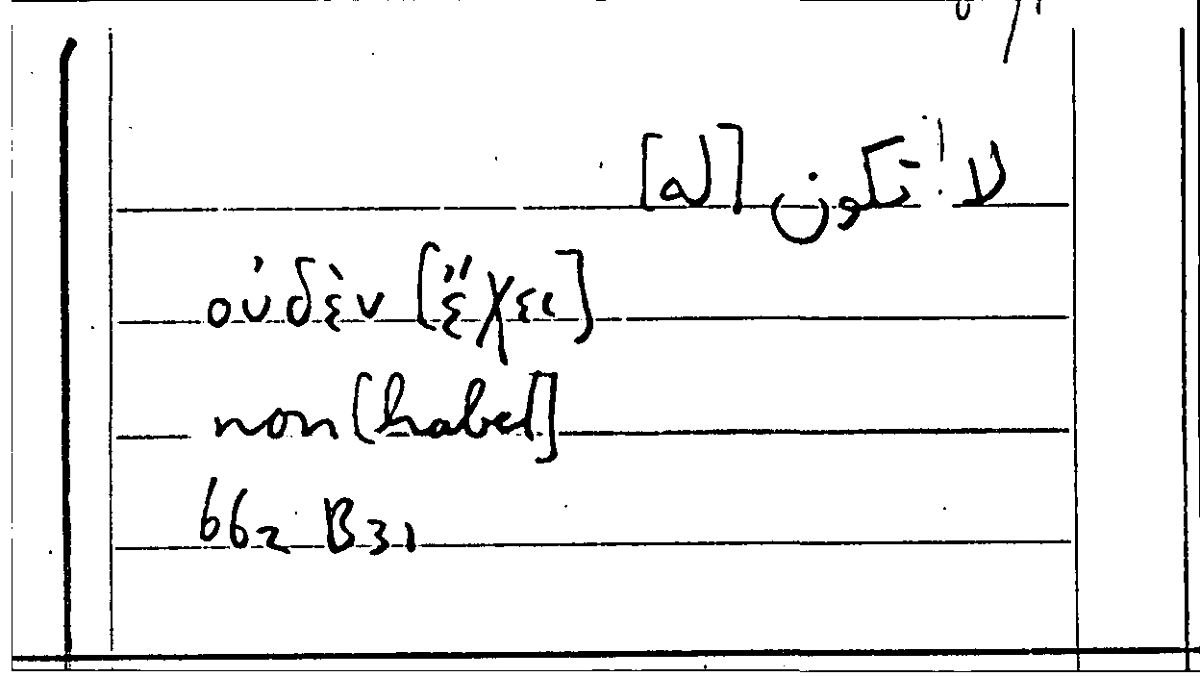 لا تكون [له]
οὐδὲν [ἔχει]
non [habet]
662 B31